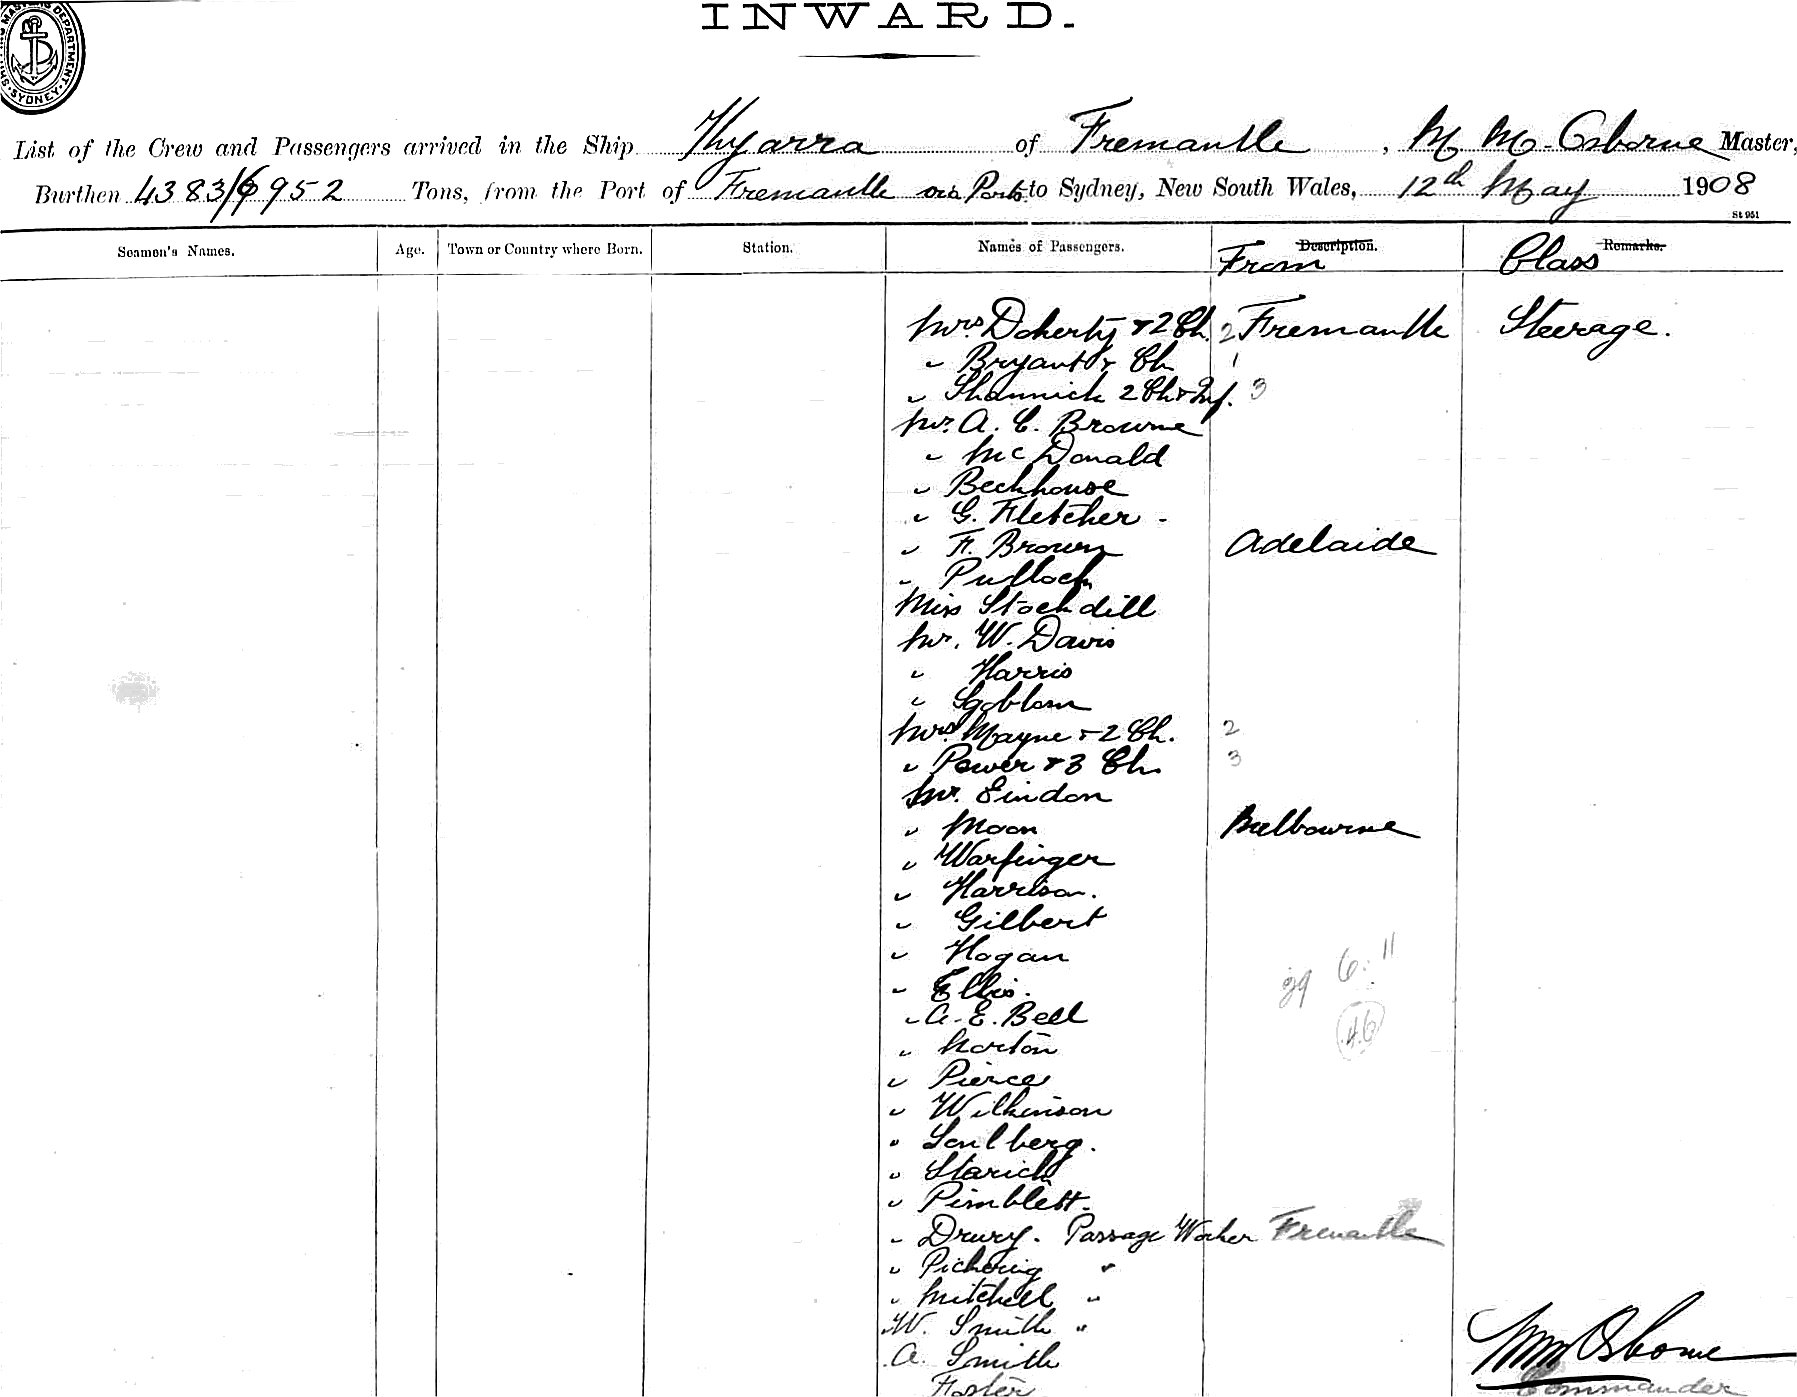 INWARD.
SYDNEY
List of the Crew and Passengers arrived in the Ship Kyarra of Fremantle, M. M. Osborne Master,
Burthen 4383/6952 Tons, from the Port of Fremantle via Ports to Sydney, New South Wales, 12th May 1908
St 951
Seamen's Names. Age. Town or Country where Born. Station. Names of Passengers. Description. From Class Remarks.
Mrs Doherty & 2 Ch. 2 Fremantle Steerage.
" Bryant & Ch 1
" Shannick 2 Ch & Inf. 3
Mr. A. C. Browne
" McDonald
" Beckhouse
" G. Fletcher -
" F. Brown Adelaide
" Pullock
Miss Stockdill
Mr. W. Davis
" Harris
"
Mrs Mayne & 2 Ch. 2
" Power & 3 Ch. 3
Mr. Eindon
" Moon Melbourne
" Warfinger
" Harrison.
" Gilbert
" Hogan
" Ellis.
" A. E. Bell
" Norton
" Pierce
" Wilkinson
" Sahlberg.
" Starick
" Pimblett.
" Drury. Passage Worker Fremantle
" Pickering "
" Mitchell "
W. Smith "
A. Smith
Foster
6 : 11
46
MM Osborne
Commander